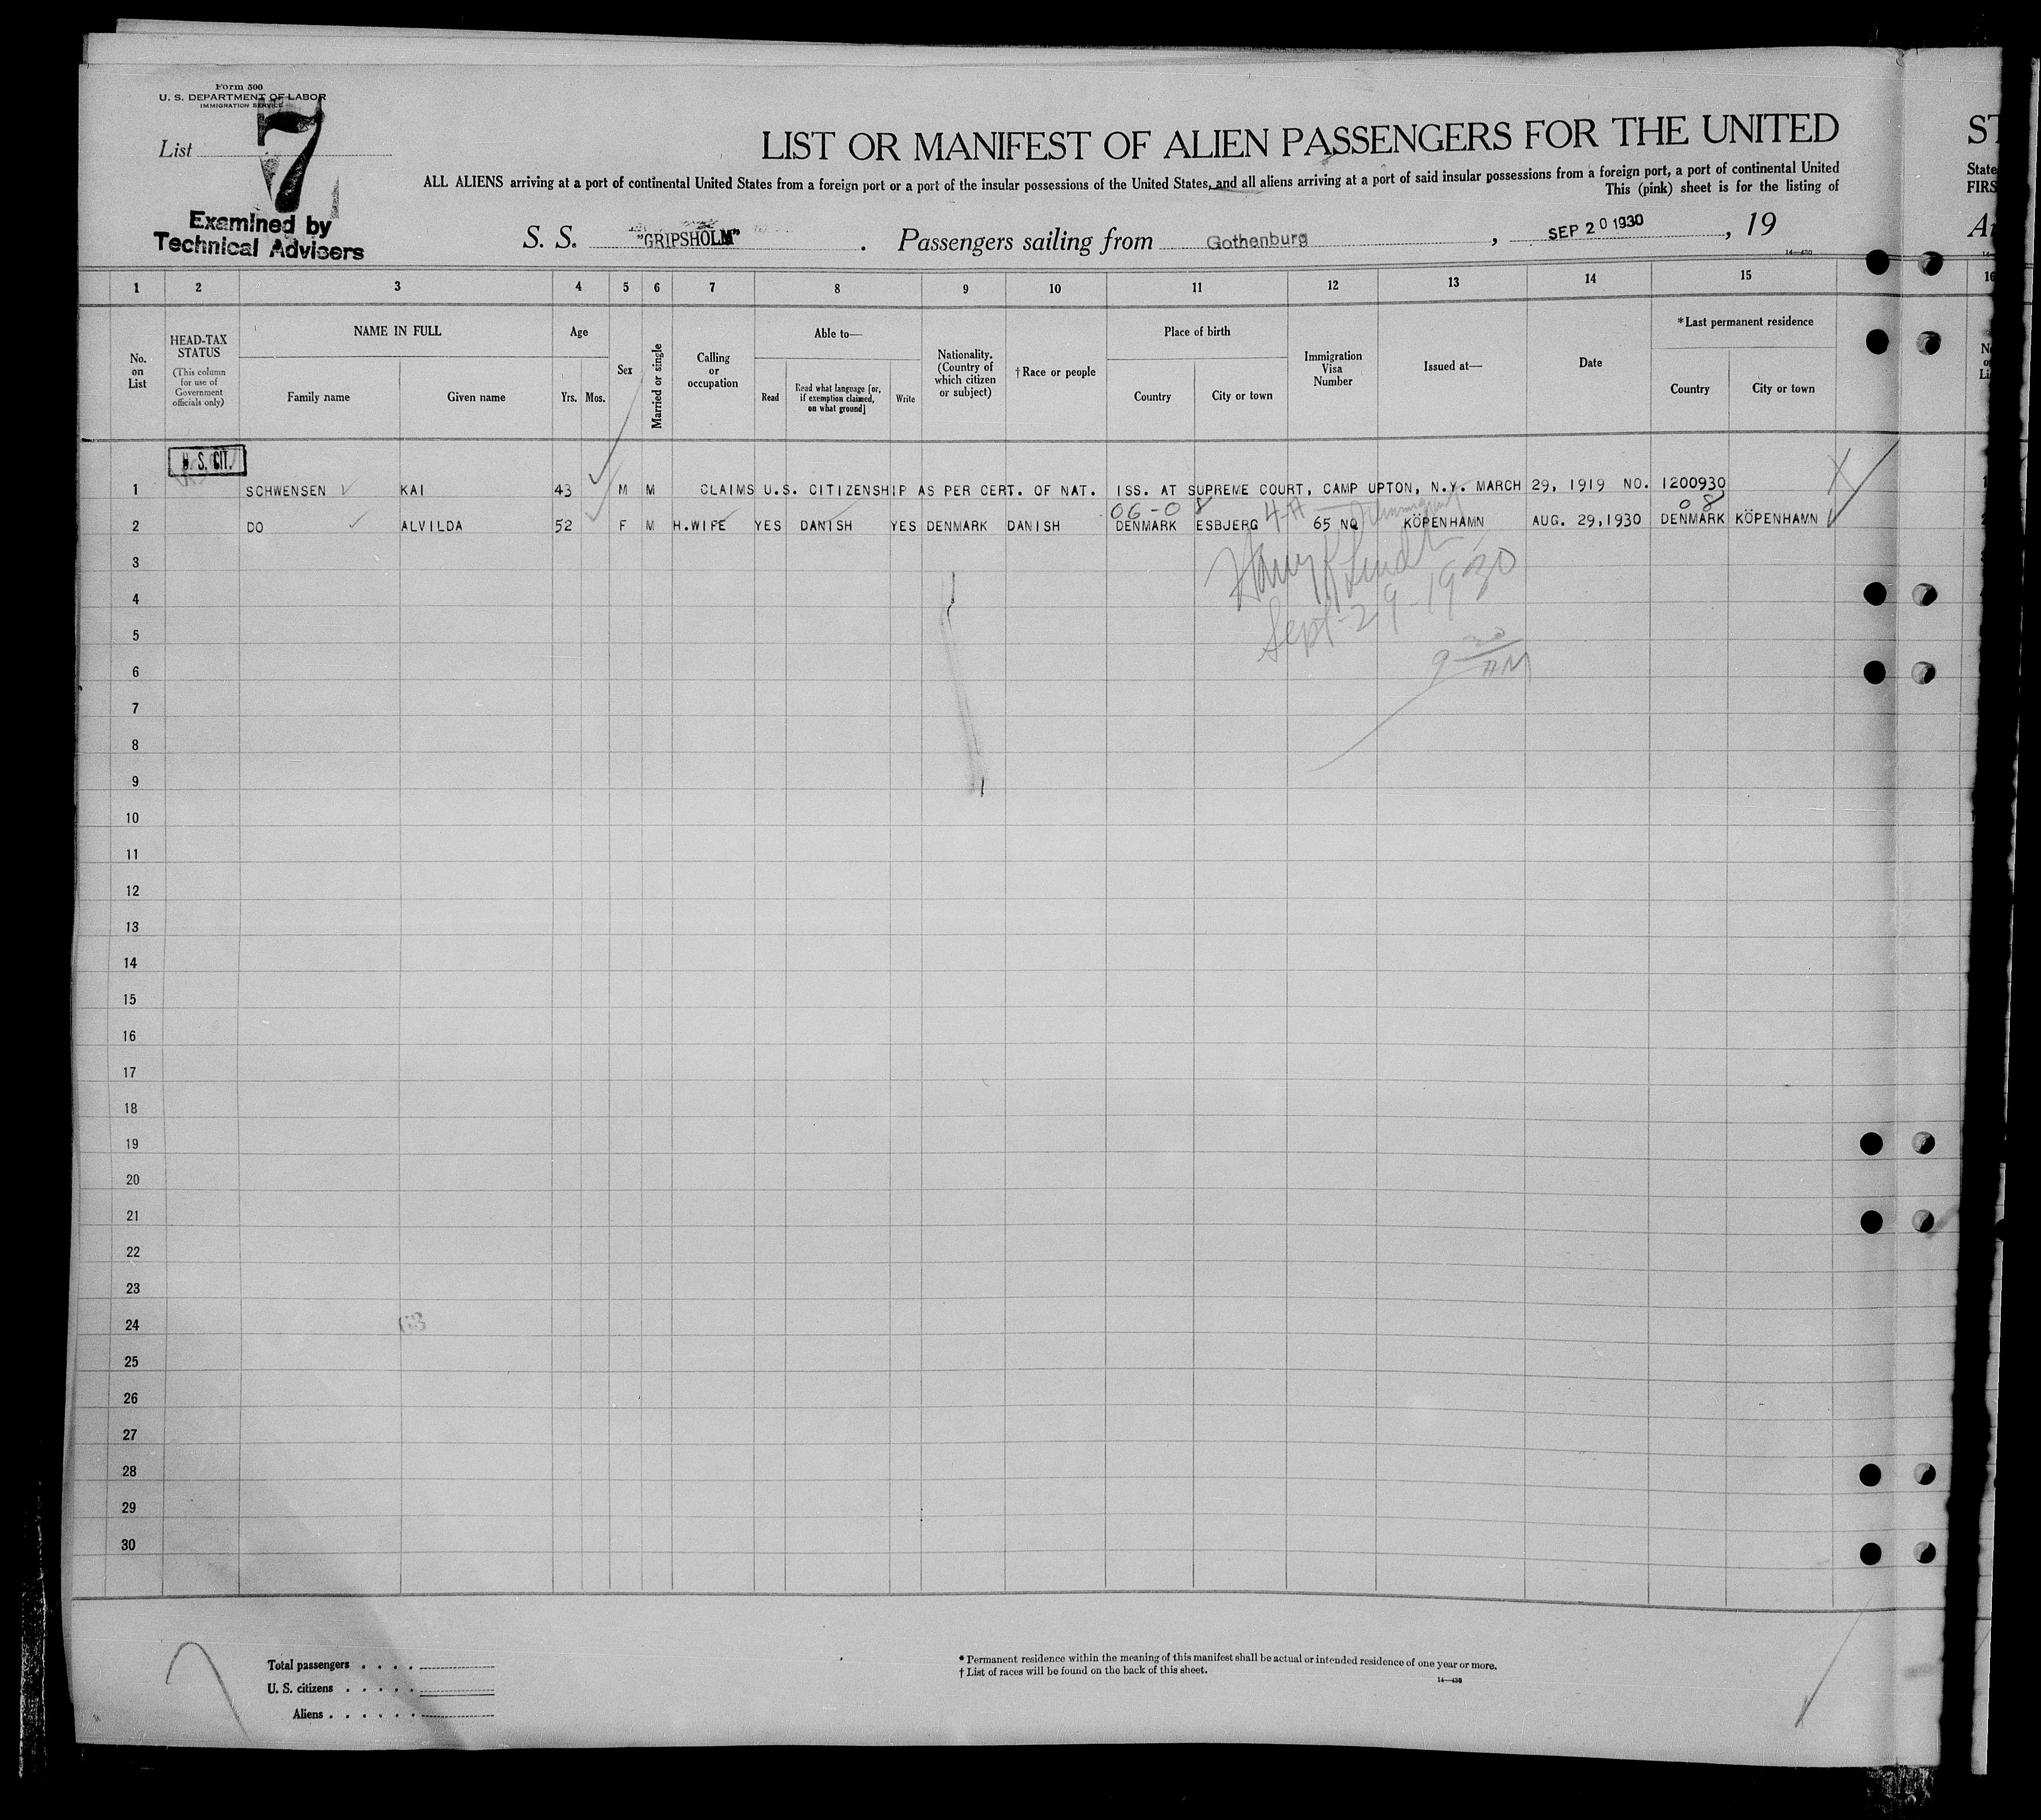 Form 500
U. S. DEPARTMENT OF LABOR
IMMIGRATION SERVICE
List 7
Examined by
Technical Advisers
LIST OR MANIFEST OF ALIEN PASSENGERS FOR THE UNITED
ALL ALIENS arriving at a port of continental United States from a foreign port or a port of the insular possessions of the United States, and all aliens arriving at a port of said insular possessions from a foreign port, a port of continental United
This (pink) sheet is for the listing of
S. S. "GRIPSHOLM" . Passengers sailing from Gothenburg , SEP 20 1930 , 19
14—430
ST
State
FIRS
1 2 3 4 5 6 7 8 9 10 11 12 13 14 15 16
No. on List
HEAD-TAX STATUS
(This column for use of Government officials only)
NAME IN FULL
Family name
Given name
Age
Yrs. Mos.
Sex
Married or single
Calling or occupation
Able to—
Read
Read what language [or, if exemption claimed, on what ground]
Write
Nationality. (Country of which citizen or subject)
† Race or people
Place of birth
Country
City or town
Immigration Visa Number
Issued at—
Date
*Last permanent residence
Country
City or town
U. S. CIT.
1 SCHWENSEN KAI 43 M M CLAIMS U.S. CITIZENSHIP AS PER CERT. OF NAT. ISS. AT SUPREME COURT, CAMP UPTON, N.Y. MARCH 29, 1919 NO. 1200930
06-0 8 4-A 08
2 DO ALVILDA 52 F M H.WIFE YES DANISH YES DENMARK DANISH DENMARK ESBJERG 65 NQ KÖPENHAMN AUG. 29,1930 DENMARK KÖPENHAMN
3
Harry
4
Sept-29-1930
5
6
9 30 AM
7
8
9
10
11
12
13
14
15
16
17
18
19
20
21
22
23
24
25
26
27
28
29
30
Total passengers . . . .
U. S. citizens . . . . .
Aliens . . . . . .
* Permanent residence within the meaning of this manifest shall be actual or intended residence of one year or more.
† List of races will be found on the back of this sheet.
14—430